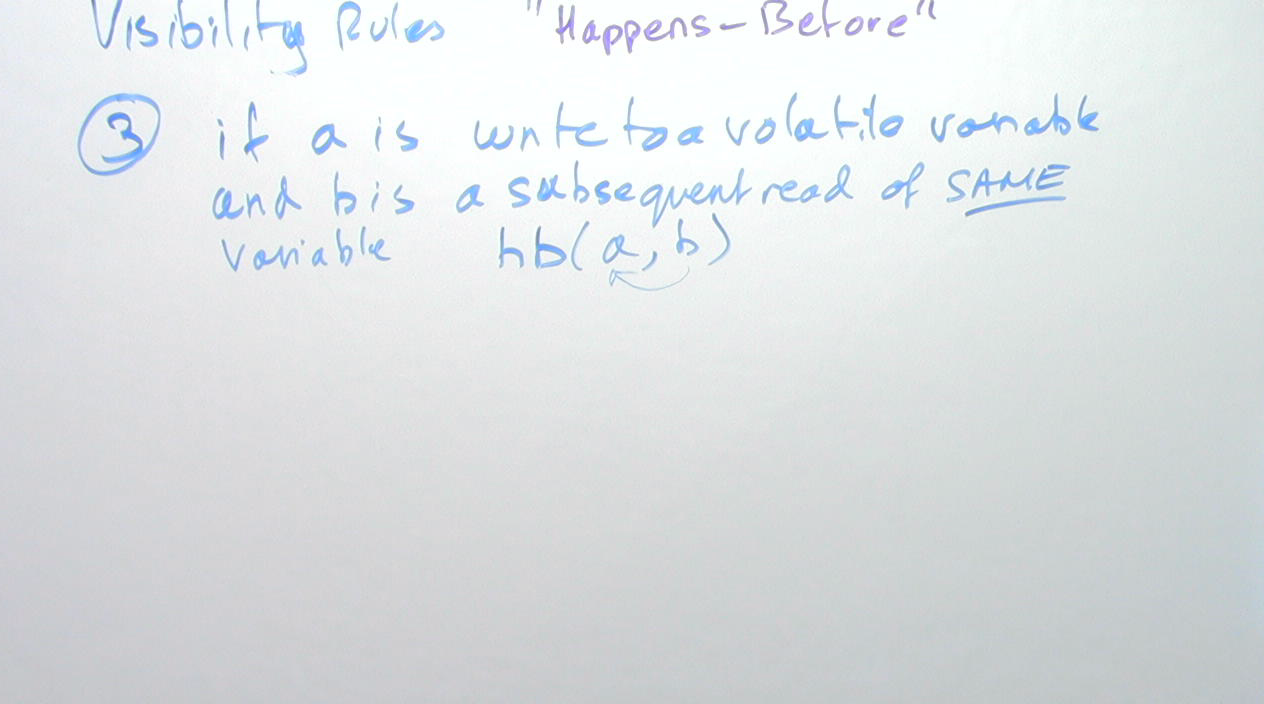 Visibility Rules "Happens-Before"
3 if a is write to a volatile variable
and b is a subsequent read of SAME
variable hb(a, b)